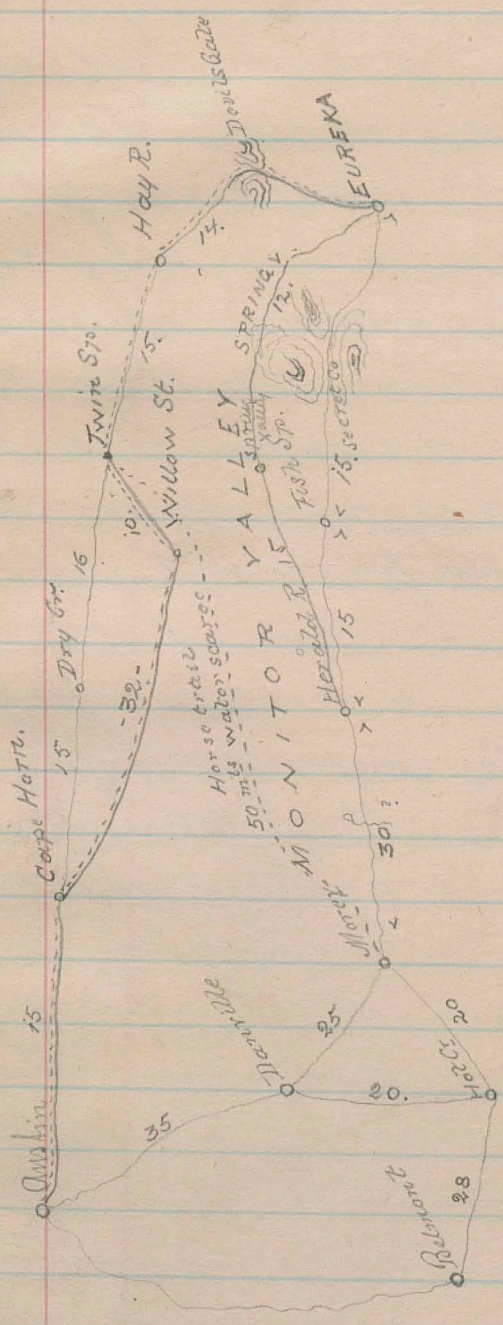 Austin
15
Cape Horn.
15
Dry Cr.
16
Twin Sp.
15.
Hay R.
14
Devils Gate
EUREKA
10.
Willow St.
-32-
Horse trail
50 mls water scarce
MONITOR VALLEY
SPRING V.
12.
Spring
Valley
15
Fish Sp.
15. Secret Co
Herald R
15
30 ?
Morey
35
Danville
25
20.
20
Hot Cr.
28
Belmont